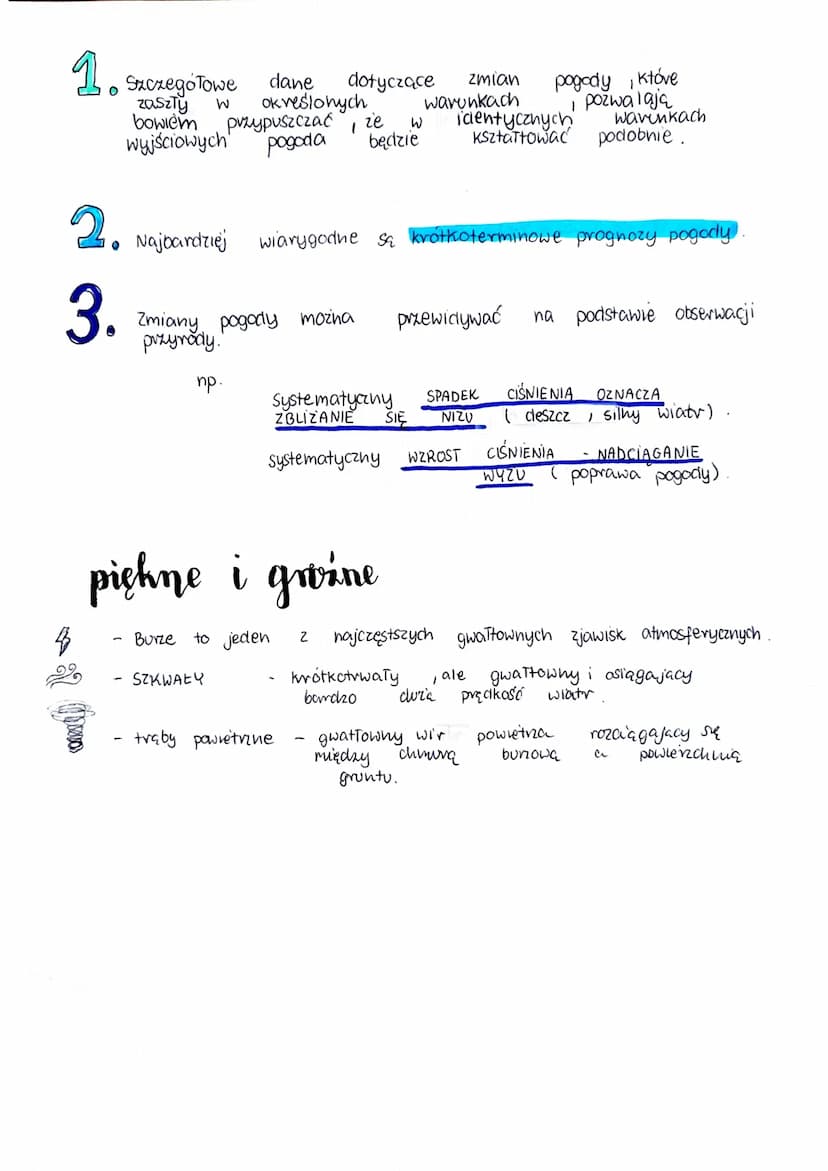 1. Szczegółowe dane dotyczące zmian pogody, które
zaszły w określonych warunkach, pozwalają
bowiem przypuszczać, że w identycznych warunkach
wyjściowych pogoda będzie kształtować podobnie.
2. Najbardziej wiarygodne są krótkoterminowe prognozy pogody.
3. Zmiany pogody można przewidywać na podstawie obserwacji
przyrody.
np.
systematyczny SPADEK CIŚNIENIA OZNACZA
ZBLIŻANIE SIĘ NIŻU (deszcz, silny wiatr).
systematyczny WZROST CIŚNIENIA - NADCIĄGANIE
WYŻU (poprawa pogody).
piękne i groźne
- Burze to jeden z najczęstszych gwałtownych zjawisk atmosferycznych.
- SZKWAŁY - krótkotrwały, ale gwałtowny i osiągający
bardzo duża prędkość wiatr.
- trąby powietrzne - gwałtowny wir powietrza rozciągający się
między chmurą burzową a powierzchnią
gruntu.